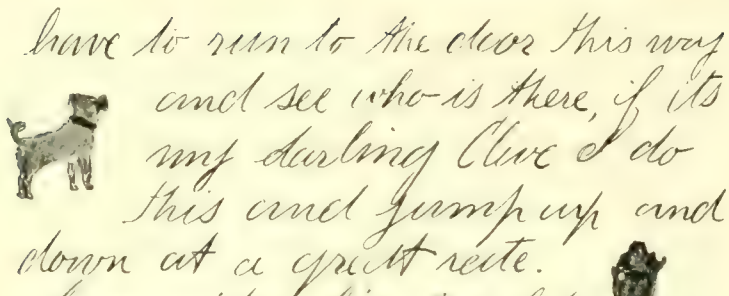 have to run to the door this way
and see who is there, if its
my darling Clive I do
this and jump up and
down at a great rate.